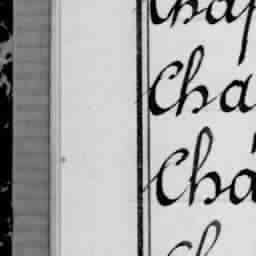 Chap
Cha
Chá
Ch